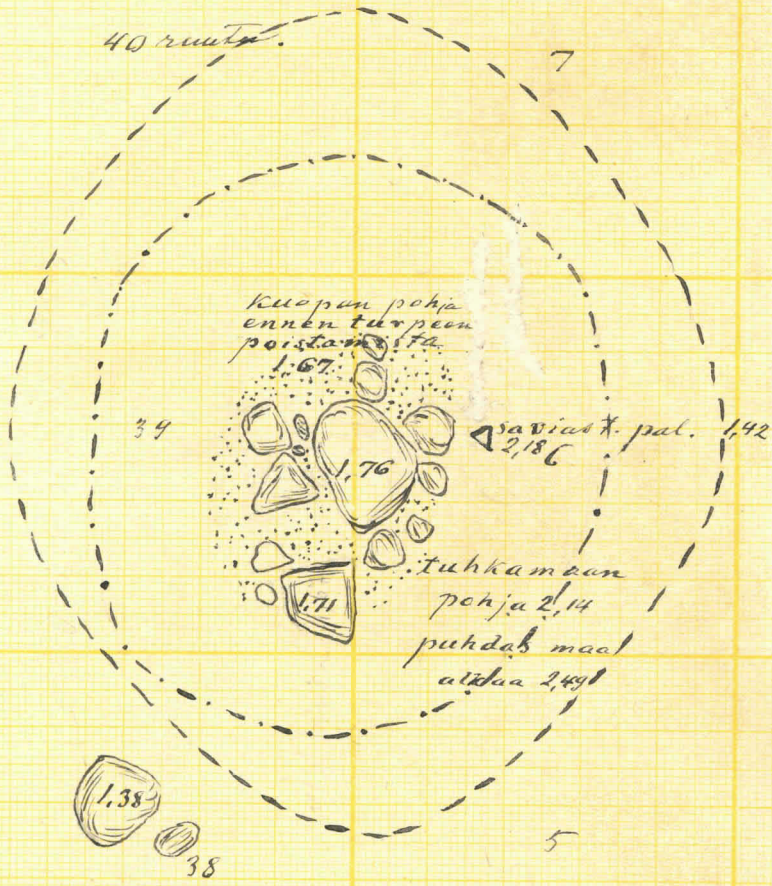 40 ruutu.
7
Kuopan pohja
ennen turpeen
poistamista
1,67
39
saviast. pal.
2,18
6
1,42
1,76
tuhkamaan
pohja 2,14
1,71
puhdas maa
alkaa 2,49
1,38
38
5